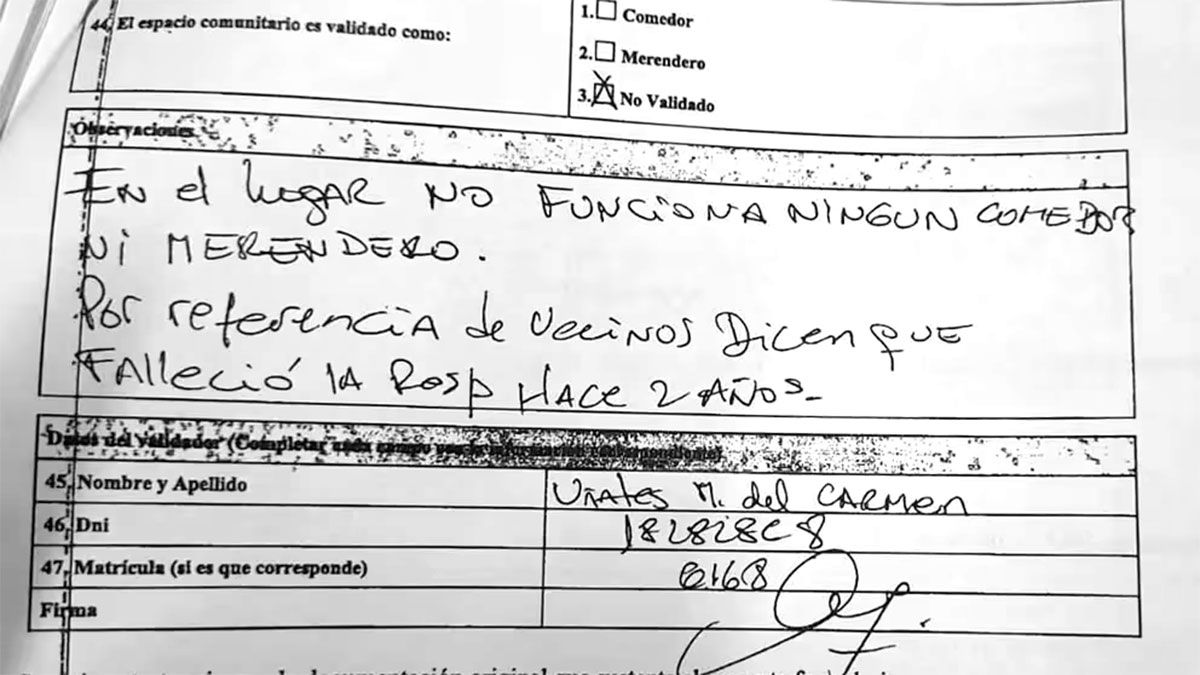 44. El espacio comunitario es validado como:
1. Comedor
2. Merendero
3. No Validado
Observaciones
EN el lugar NO FUNCIONA NINGUN COMEDOR
NI MERENDERO.
Por referencia de Vecinos Dicen que
Falleció la Resp Hace 2 AÑOS.
Datos del validador (Completar cada campo con la información correspondiente)
45. Nombre y Apellido
M. del CARMEN
46. Dni
47. Matrícula (si es que corresponde)
6168
Firma